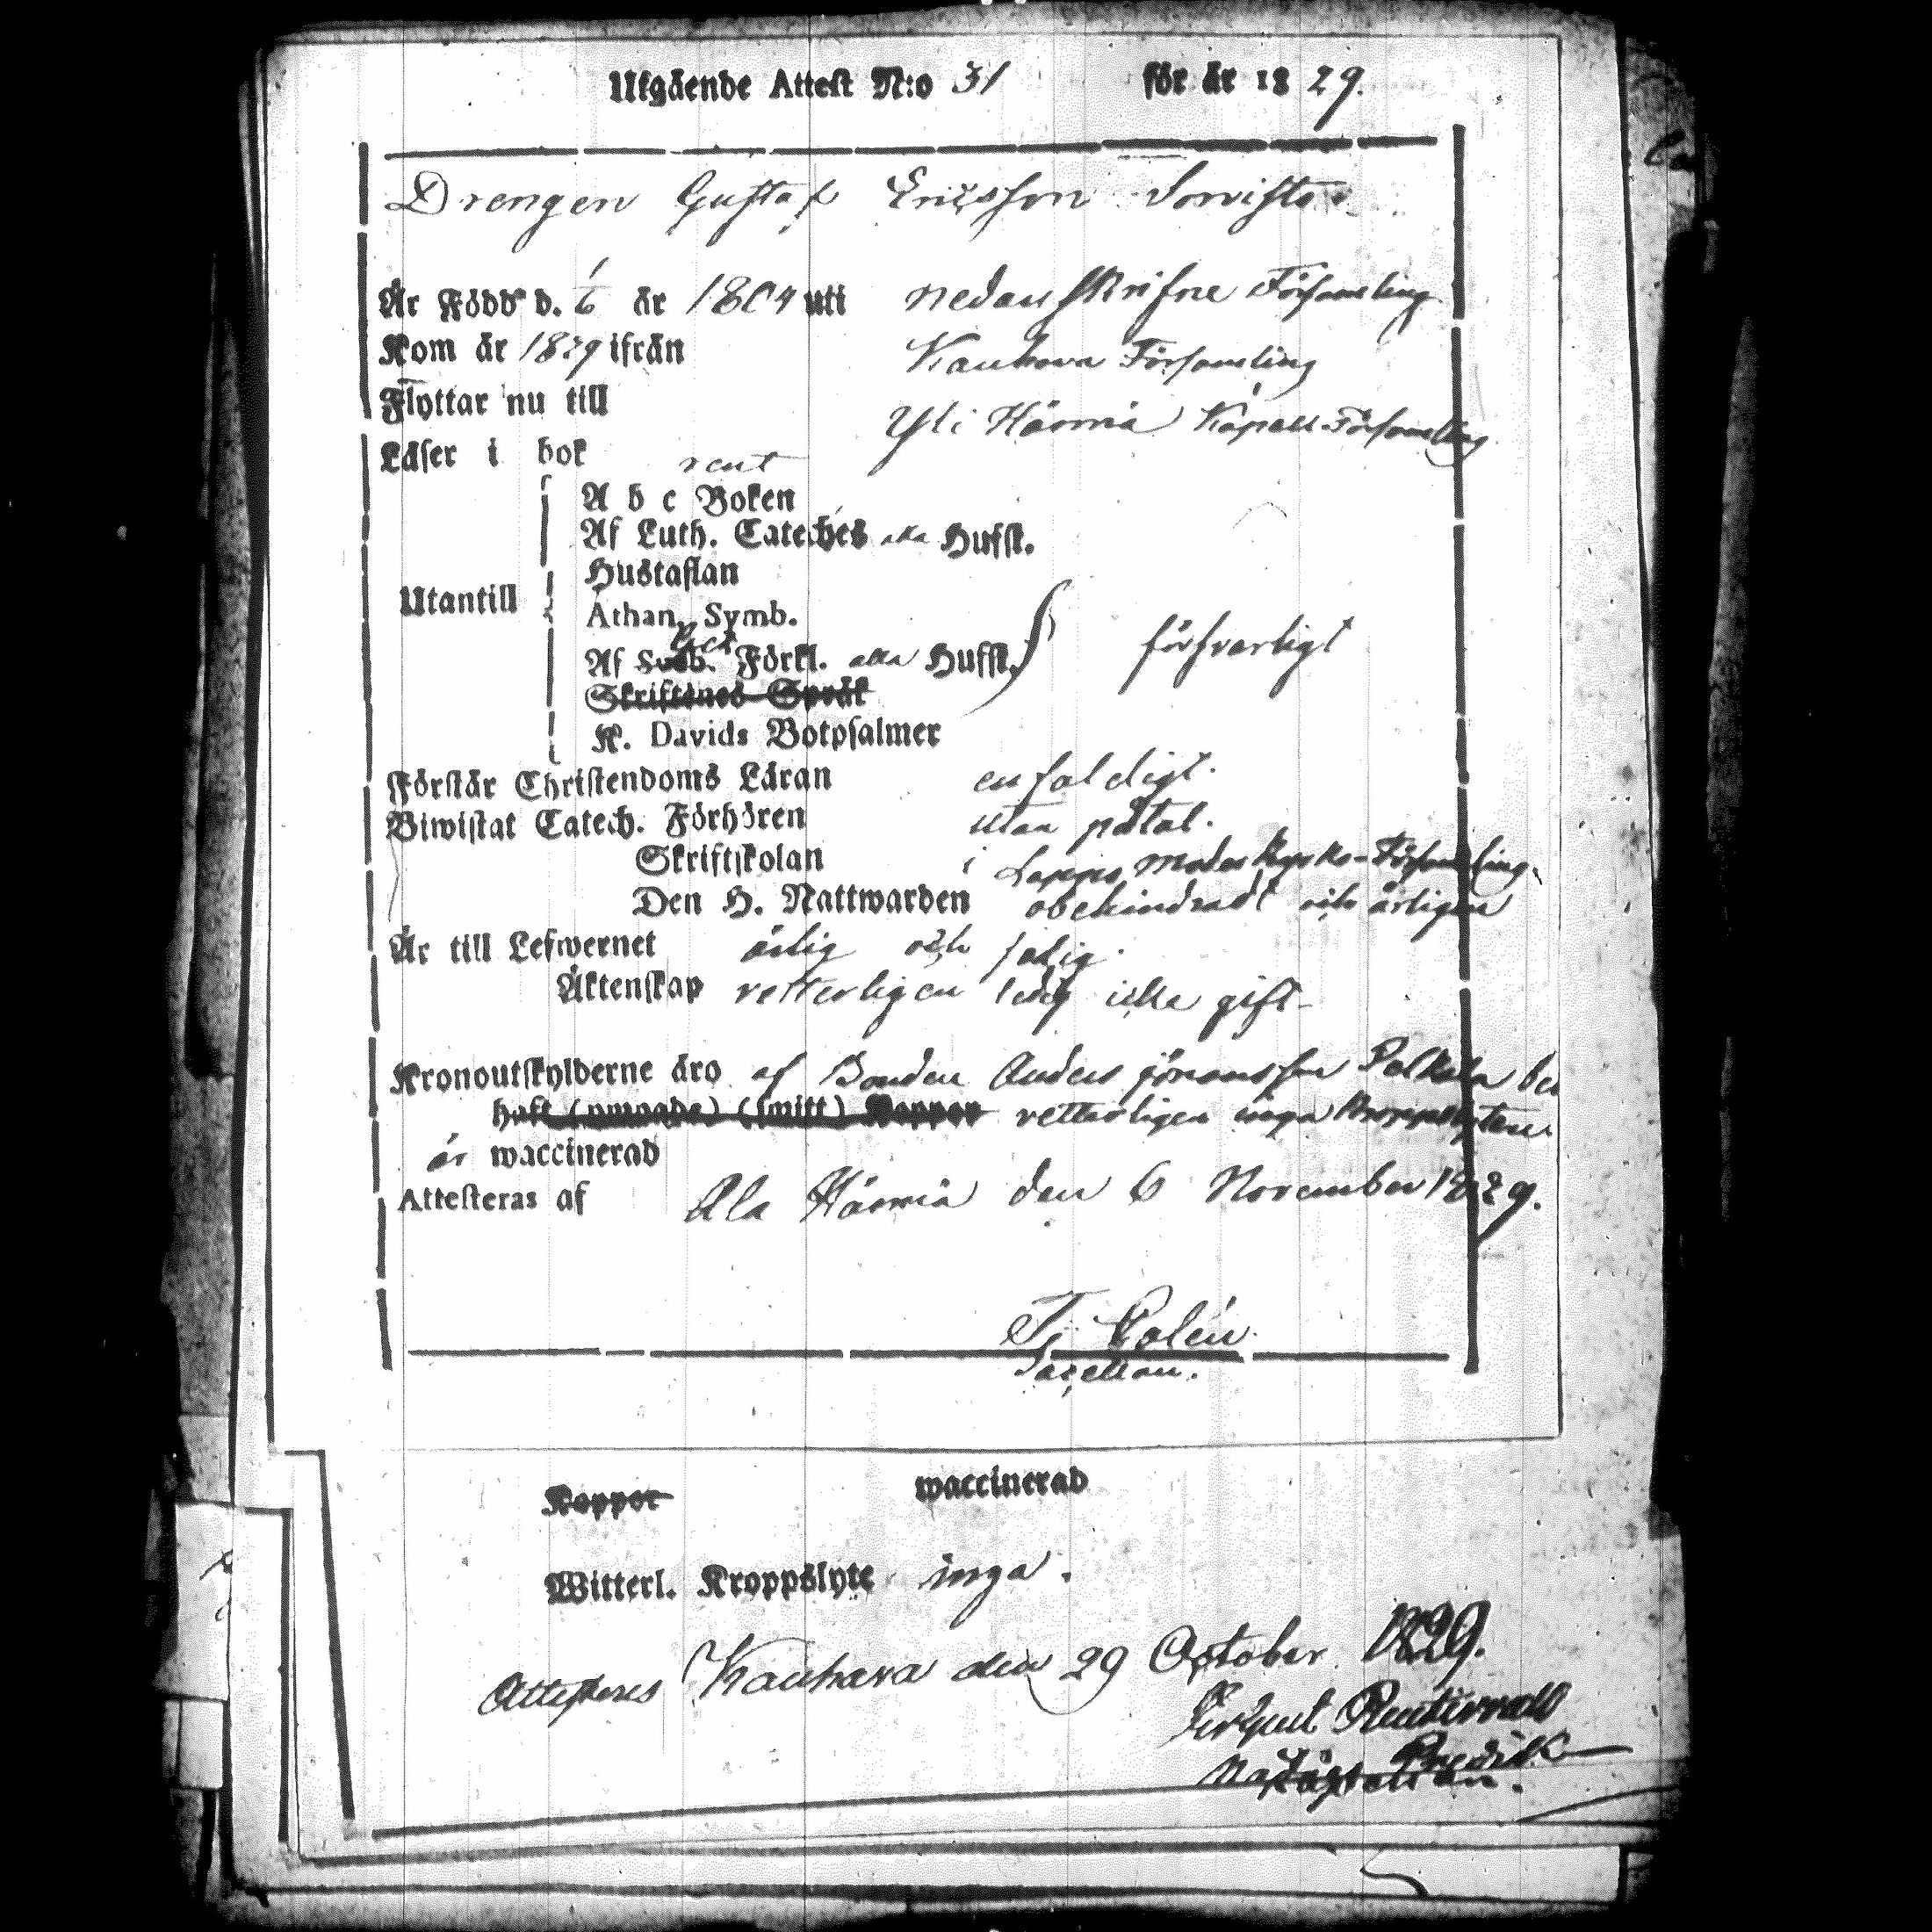 Utgående Attest N:o 31 för år 1829.
Drengen Gustaf Ericsson
Är Född d. 1/6 år 1804 uti nedanskrifne Församling
Kom år 1829 ifrån Kauhava Församling
Flyttar nu till Yli Härmä Kapell Församling
Läser i bok rent
A b c Boken
Af Luth. Cateches alla Hufst.
Hustaflan
Utantill
Athan. Symb.
Af Förkl. alla Hufst. försvarligt
Skriftenes Språk
K. Davids Botpsalmer
Förstår Christendoms Läran enfaldigt.
Biwistat Catech. Förhören utan påtal.
Skriftskolan i Lappo Moderkyrko-Församling.
Den H. Nattwarden obehindradt och årligen
Är till Lefwernet ärlig och
Äktenskap vetterligen ledig icke gift
Kronoutskylderne äro af Bonden Anders Jöransson
haft (umgade) (smitt) Koppor vetterligen inga Kroppslyten.
är waccinerad
Attesteras af Ala Härmä den 6 November 1829.
Kapellan.
Koppor waccinerad
Witterl. Kroppslyte inga.
Attesteres Kauhava den 29 October 1829.